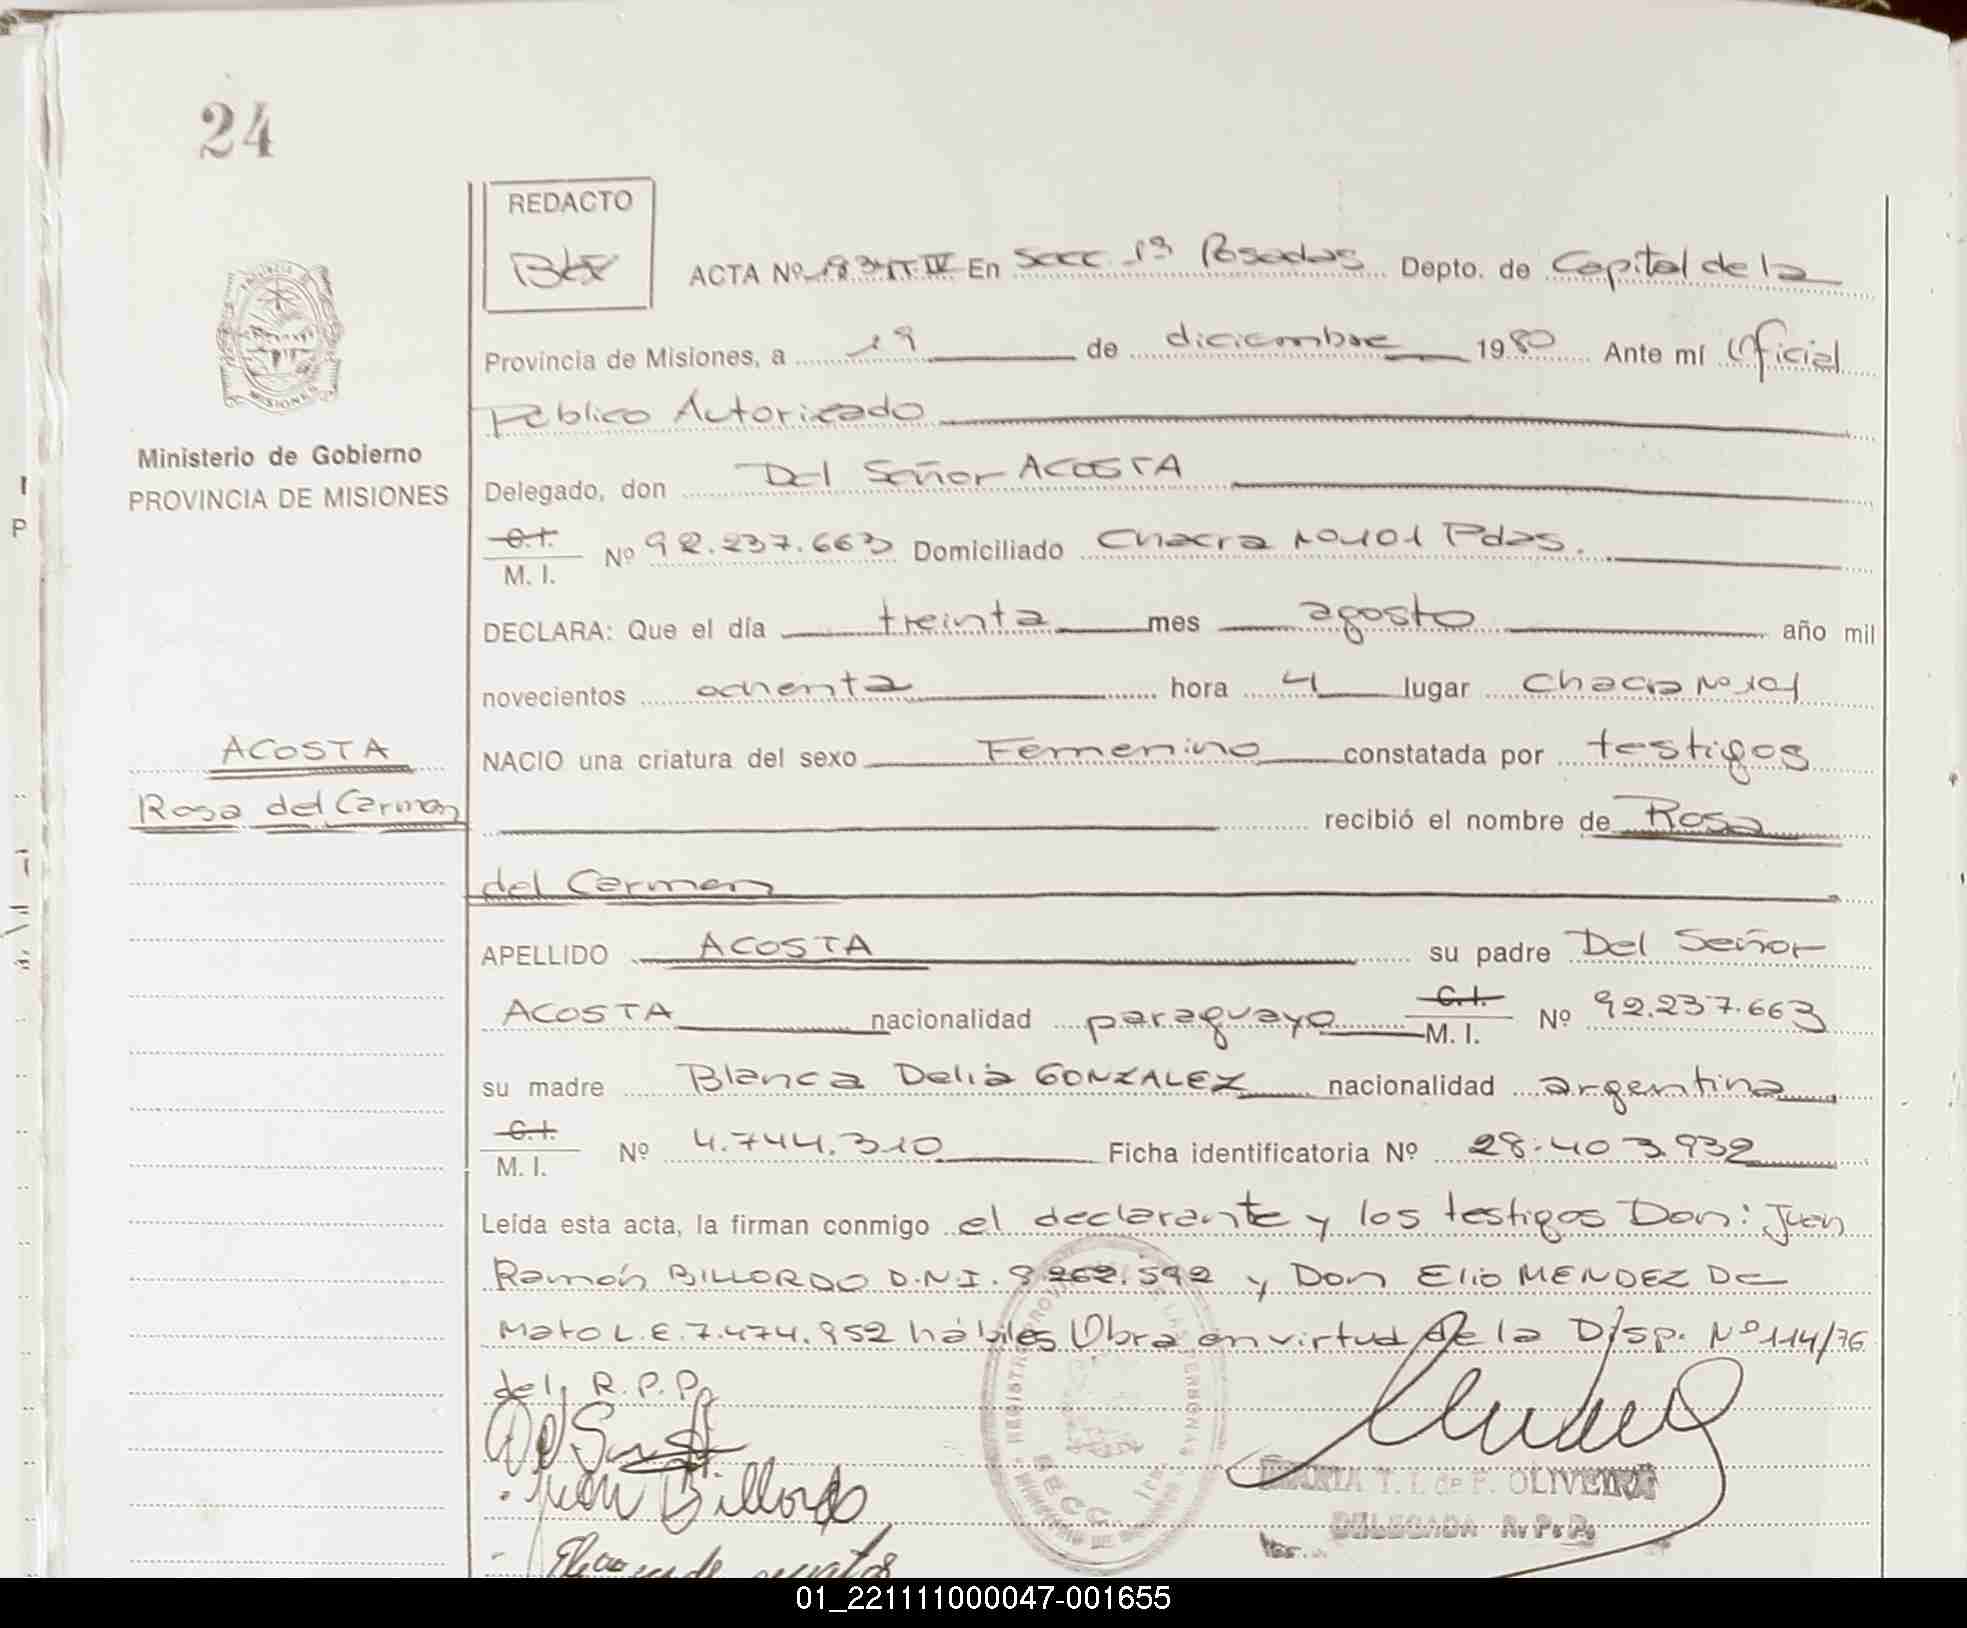 24
REDACTO
ACTA Nº T.IV En Secc. 1ª Posadas Depto. de Capital de la
Provincia de Misiones, a 19 de diciembre 1980 Ante mí Oficial
Público Autorizado
Delegado, don Del Señor ACOSTA
C.I.
M. I. Nº 92.237.663 Domiciliado Chacra Nº 101 Pdas.
DECLARA: Que el día treinta mes agosto año mil
novecientos ochenta hora 4 lugar Chacra Nº 101
NACIO una criatura del sexo Femenino constatada por testigos
recibió el nombre de Rosa
del Carmen
APELLIDO ACOSTA su padre Del Señor
ACOSTA nacionalidad paraguayo C.I. M. I. Nº 92.237.663
su madre Blanca Delia GONZALEZ nacionalidad argentina
C.I.
M. I. Nº 4.744.310 Ficha identificatoria Nº 28.403.932
Leída esta acta, la firman conmigo el declarante y los testigos Don: Juan
Ramón BILLORDO D.N.I. 8.262.592 y Don Elio MENDEZ De
Mato L.E. 7.474.952 hábiles Obra en virtud de la Disp. Nº 114/76
del R.P.P.
Juan Billordo
MARIA T. I. de F. OLIVEIRA
DELEGADA R. P. P.
SECC. 1ra.
MISIONES
Ministerio de Gobierno
PROVINCIA DE MISIONES
ACOSTA
Rosa del Carmen
01_221111000047-001655